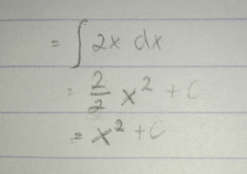 = ∫ 2x dx
= 2/2 x² + C
= x² + C